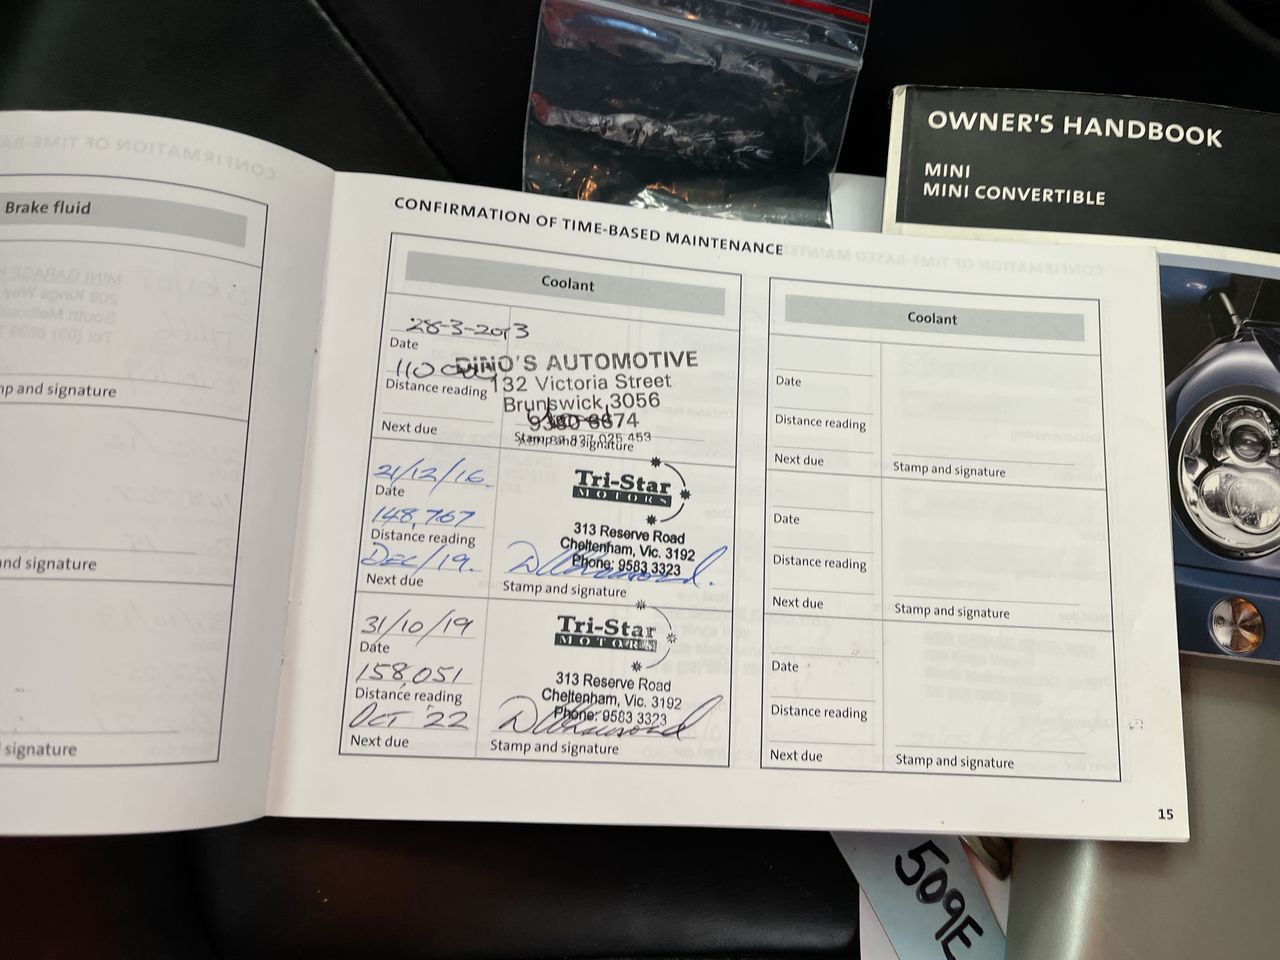 Brake fluid
np and signature
nd signature
signature
CONFIRMATION OF TIME-BASED MAINTENANCE
Coolant
28-3-2013
Date
110 000
Distance reading
Next due
DINO'S AUTOMOTIVE
132 Victoria Street
Brunswick 3056
9380 8674
Stamp and signature
21/12/16.
Date
148,767
Distance reading
Dec/19.
Next due
Tri-Star
MOTORS
313 Reserve Road
Cheltenham, Vic. 3192
Phone: 9583 3323
Stamp and signature
31/10/19
Date
158,051
Distance reading
OCT '22
Next due
Tri-Star
MOTORS
313 Reserve Road
Cheltenham, Vic. 3192
Phone: 9583 3323
Stamp and signature
Coolant
Date
Distance reading
Next due
Stamp and signature
Date
Distance reading
Next due
Stamp and signature
Date
Distance reading
Next due
Stamp and signature
15
OWNER'S HANDBOOK
MINI
MINI CONVERTIBLE
509E